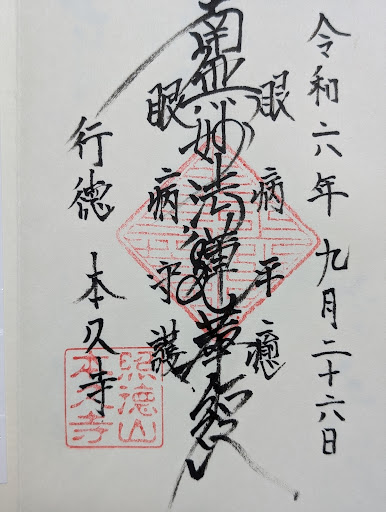 令和六年九月二十六日
眼病平癒
南無妙法蓮華経
眼病守護
行徳 本久寺
照徳山
本久寺